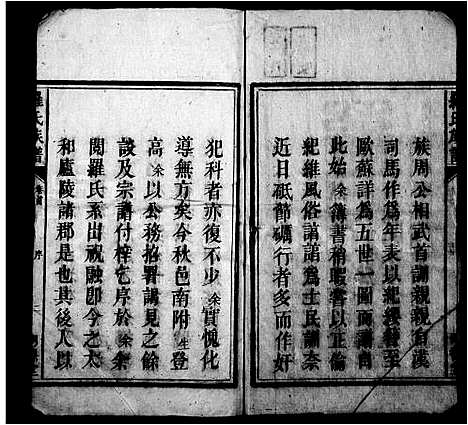 族周公相武首訓親親自漢
司馬作為年表以紀後替至
歐蘇詳為五世一圖而譜自
此始余簿書稍暇嘗以正倫
紀維風俗諄諄為士民誦奈
近日砥節礪行者多而作奸
犯科者亦復不少余實愧化
導無方矣今秋邑南附生登
高余以公務招署講見之餘
談及宗譜付梓乞序於余余
閱羅氏系出祝融卽今之太
和廬陵諸郡是也其後人以
羅氏族譜
序